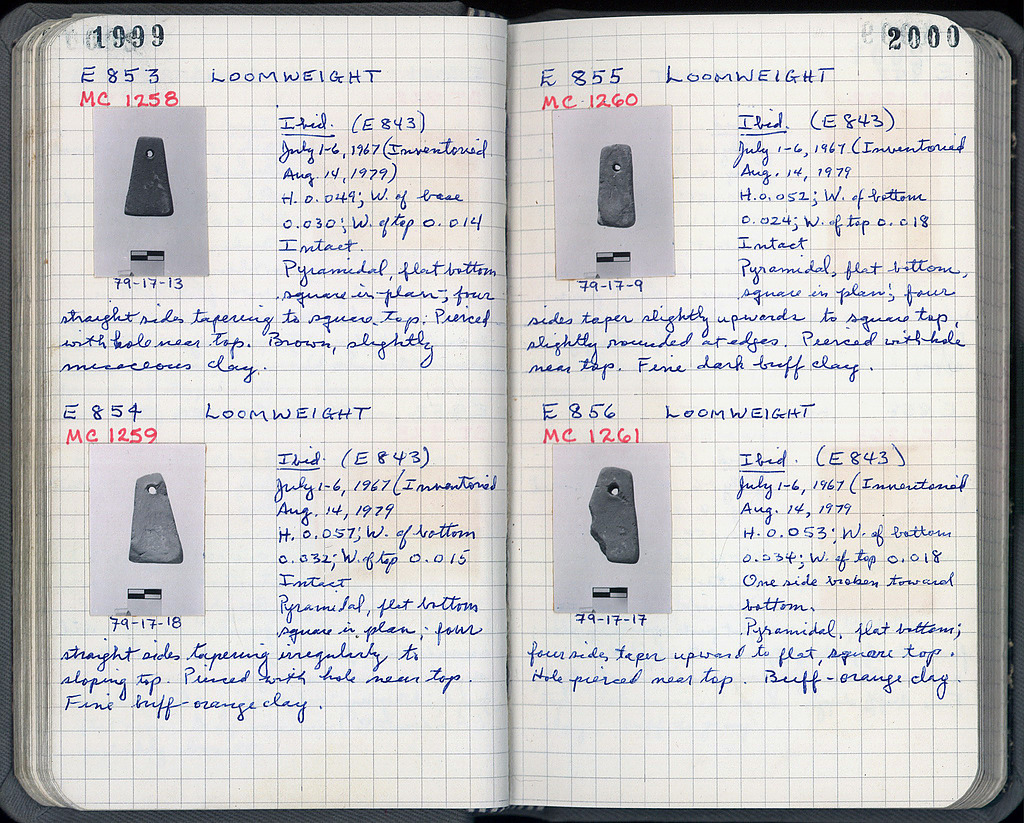 1999
E 853 LOOMWEIGHT
MC 1258
Ibid. (E 843)
July 1-6, 1967 (Inventoried
Aug. 14, 1979)
H. 0.049; W. of base
0.030; W. of top 0.014
Intact.
Pyramidal, flat bottom
square in plan; four
79-17-13
straight sides tapering to square top. Pierced
with hole near top. Brown, slightly
micaceous clay.
E 854 LOOMWEIGHT
MC 1259
Ibid. (E 843)
July 1-6, 1967 (Inventoried
Aug. 14, 1979
H. 0.057; W. of bottom
0.032; W. of top 0.015
Intact
Pyramidal, flat bottom
square in plan; four
79-17-18
straight sides tapering irregularly to
sloping top. Pierced with hole near top.
Fine buff-orange clay.
2000
E 855 LOOMWEIGHT
MC 1260
Ibid. (E 843)
July 1-6, 1967 (Inventoried
Aug. 14, 1979
H. 0.052; W. of bottom
0.024; W. of top 0.018
Intact
Pyramidal, flat bottom,
square in plan; four
79-17-9
sides taper slightly upwards to square top,
slightly rounded at edges. Pierced with hole
near top. Fine dark buff clay.
E 856 LOOMWEIGHT
MC 1261
Ibid. (E 843)
July 1-6, 1967 (Inventoried
Aug. 14, 1979
H. 0.053; W. of bottom
0.034; W. of top 0.018
One side broken toward
bottom.
Pyramidal, flat bottom;
79-17-17
four sides taper upward to flat, square top.
Hole pierced near top. Buff-orange clay.